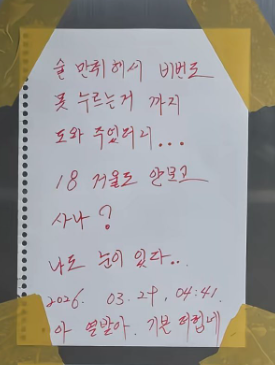 술 만취해서 비번도
못 누르는거 까지
도와 주었더니...
18 거울도 안보고
사나?
나도 눈이 있다..
2026. 03. 29, 04:41.
아 열받아. 기분 더럽네